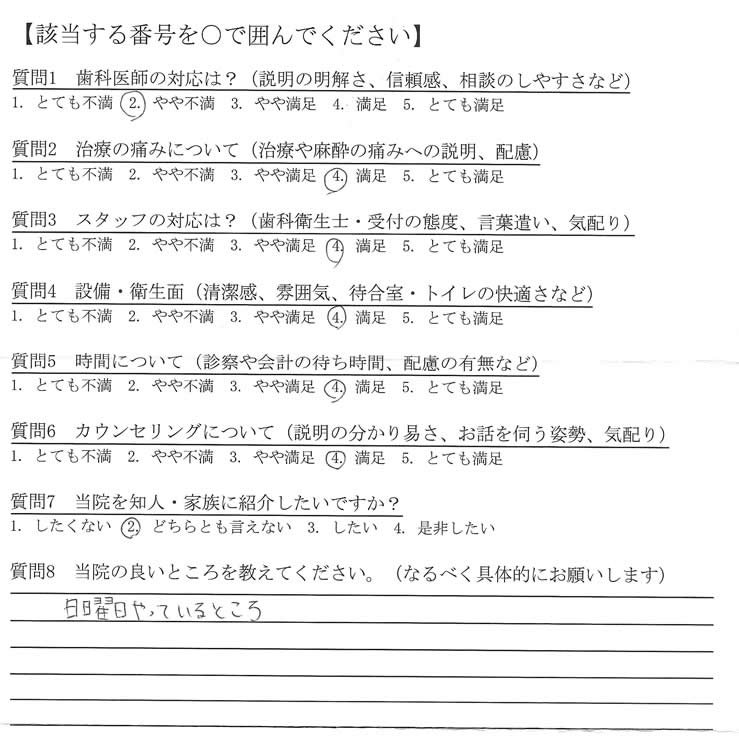 【該当する番号を○で囲んでください】
質問1 歯科医師の対応は？（説明の明解さ、信頼感、相談のしやすさなど）
1. とても不満 2. やや不満 3. やや満足 4. 満足 5. とても満足
質問2 治療の痛みについて（治療や麻酔の痛みへの説明、配慮）
1. とても不満 2. やや不満 3. やや満足 4. 満足 5. とても満足
質問3 スタッフの対応は？（歯科衛生士・受付の態度、言葉遣い、気配り）
1. とても不満 2. やや不満 3. やや満足 4. 満足 5. とても満足
質問4 設備・衛生面（清潔感、雰囲気、待合室・トイレの快適さなど）
1. とても不満 2. やや不満 3. やや満足 4. 満足 5. とても満足
質問5 時間について（診察や会計の待ち時間、配慮の有無など）
1. とても不満 2. やや不満 3. やや満足 4. 満足 5. とても満足
質問6 カウンセリングについて（説明の分かり易さ、お話を伺う姿勢、気配り）
1. とても不満 2. やや不満 3. やや満足 4. 満足 5. とても満足
質問7 当院を知人・家族に紹介したいですか？
1. したくない 2. どちらとも言えない 3. したい 4. 是非したい
質問8 当院の良いところを教えてください。（なるべく具体的にお願いします）
日曜日やっているところ